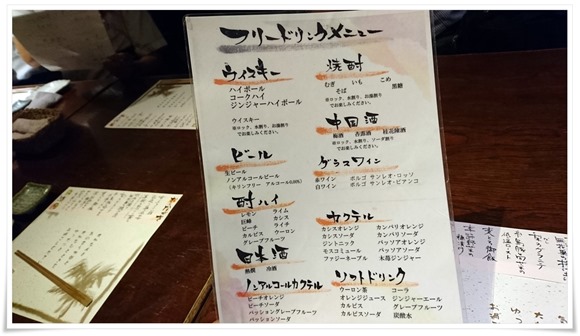 フリードリンクメニュー
ウイスキー
ハイボール
コークハイ
ジンジャーハイボール
ウイスキー
※ロック、水割り、お湯割り
でお楽しみください。
ビール
生ビール
ノンアルコールビール
(キリンフリー アルコール0.00%)
酎ハイ
レモン ライム
巨峰 カシス
ピーチ ライチ
カルピス ウーロン
グレープフルーツ
日本酒
熱燗 冷酒
ノンアルコールカクテル
ピーチオレンジ
ピーチソーダ
パッショングレープフルーツ
パッションソーダ
焼酎
むぎ いも こめ
そば 黒糖
※ロック、水割り、お湯割り
でお楽しみください。
中国酒
梅酒 杏露酒 桂花陳酒
※ロック、水割り、ソーダ割り
でお楽しみください。
グラスワイン
赤ワイン ボルゴ サンレオ・ロッソ
白ワイン ボルゴ サンレオ・ビアンコ
カクテル
カシスオレンジ カンパリオレンジ
カシスソーダ カンパリソーダ
ジントニック パッソアオレンジ
モスコミュール パッソアソーダ
ファジーネーブル 木苺ジンジャー
ソフトドリンク
ウーロン茶 コーラ
オレンジジュース ジンジャーエール
カルピス グレープフルーツ
カルピスソーダ 炭酸水